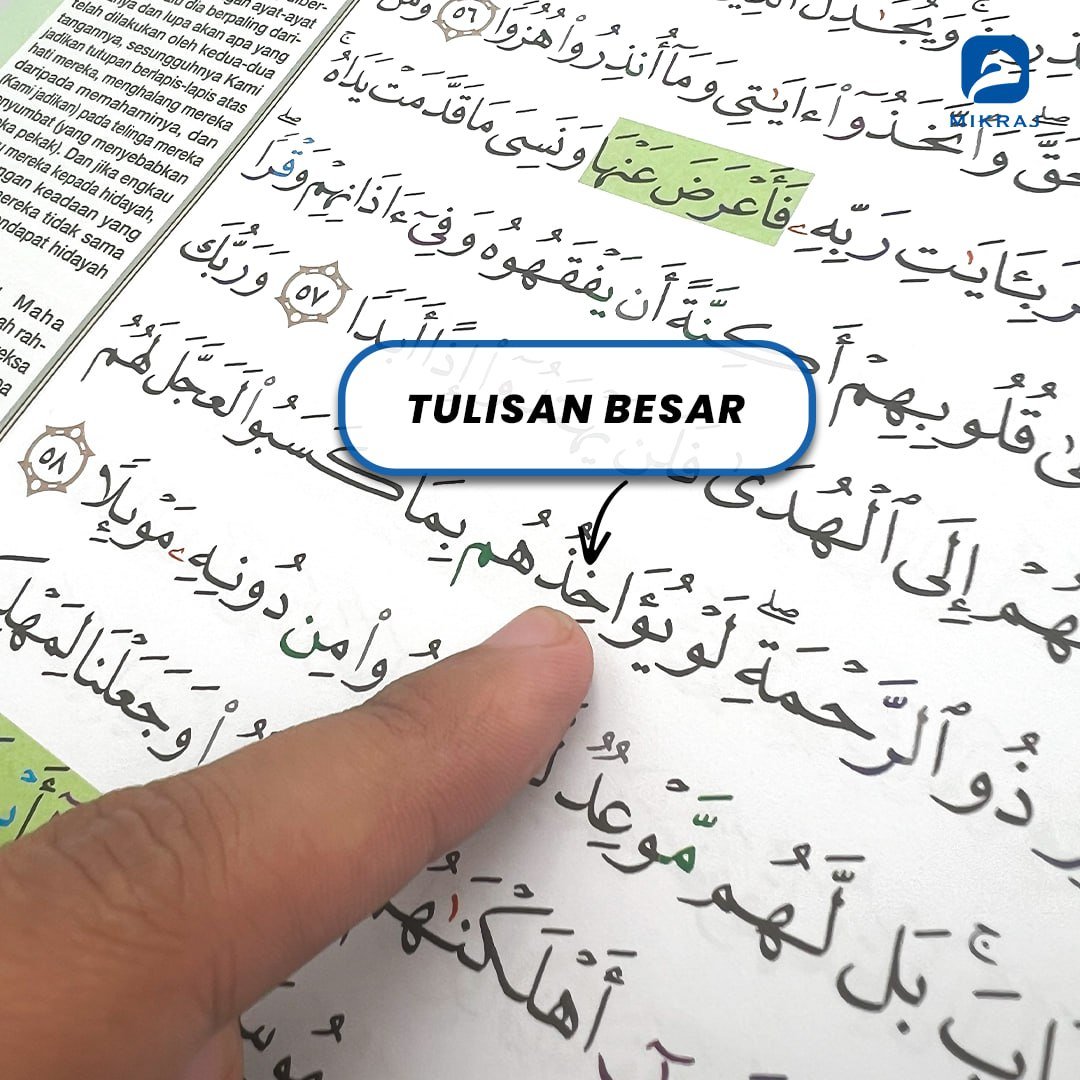 MIKRAJ
ayat-ayat
dia berpaling dari-
dan lupa akan apa yang
telah dilakukan oleh kedua-dua
tangannya, sesungguhnya Kami
jadikan tutupan berlapis-lapis atas
hati mereka, menghalang mereka
daripada memahaminya, dan
(Kami jadikan) pada telinga mereka
nyumbat (yang menyebabkan
pekak). Dan jika engkau
mereka kepada hidayah,
ngan keadaan yang
ereka tidak sama
ndapat hidayah
Maha
rah-
eksa
وَيُجَـٰدِلُ
وَٱتَّخَذُوٓا۟ ءَايَـٰتِى وَمَآ أُنذِرُوا۟ هُزُوًا ٥٦
رَبِّهِۦ فَأَعْرَضَ عَنْهَا وَنَسِىَ مَا قَدَّمَتْ يَدَاهُ ۚ
قُلُوبِهِمْ أَكِنَّةً أَن يَفْقَهُوهُ وَفِىٓ ءَاذَانِهِمْ وَقْرًا ۖ
إِلَى ٱلْهُدَىٰ فَلَن أَبَدًا ٥٧ وَرَبُّكَ
ذُو ٱلرَّحْمَةِ ۖ لَوْ يُؤَاخِذُهُم بِمَا كَسَبُوا۟ لَعَجَّلَ لَهُمُ
بَل لَّهُم مَّوْعِدٌ مِن دُونِهِۦ مَوْئِلًا ٥٨
أَهْلَكْنَـٰهُمْ وَجَعَلْنَا
TULISAN BESAR